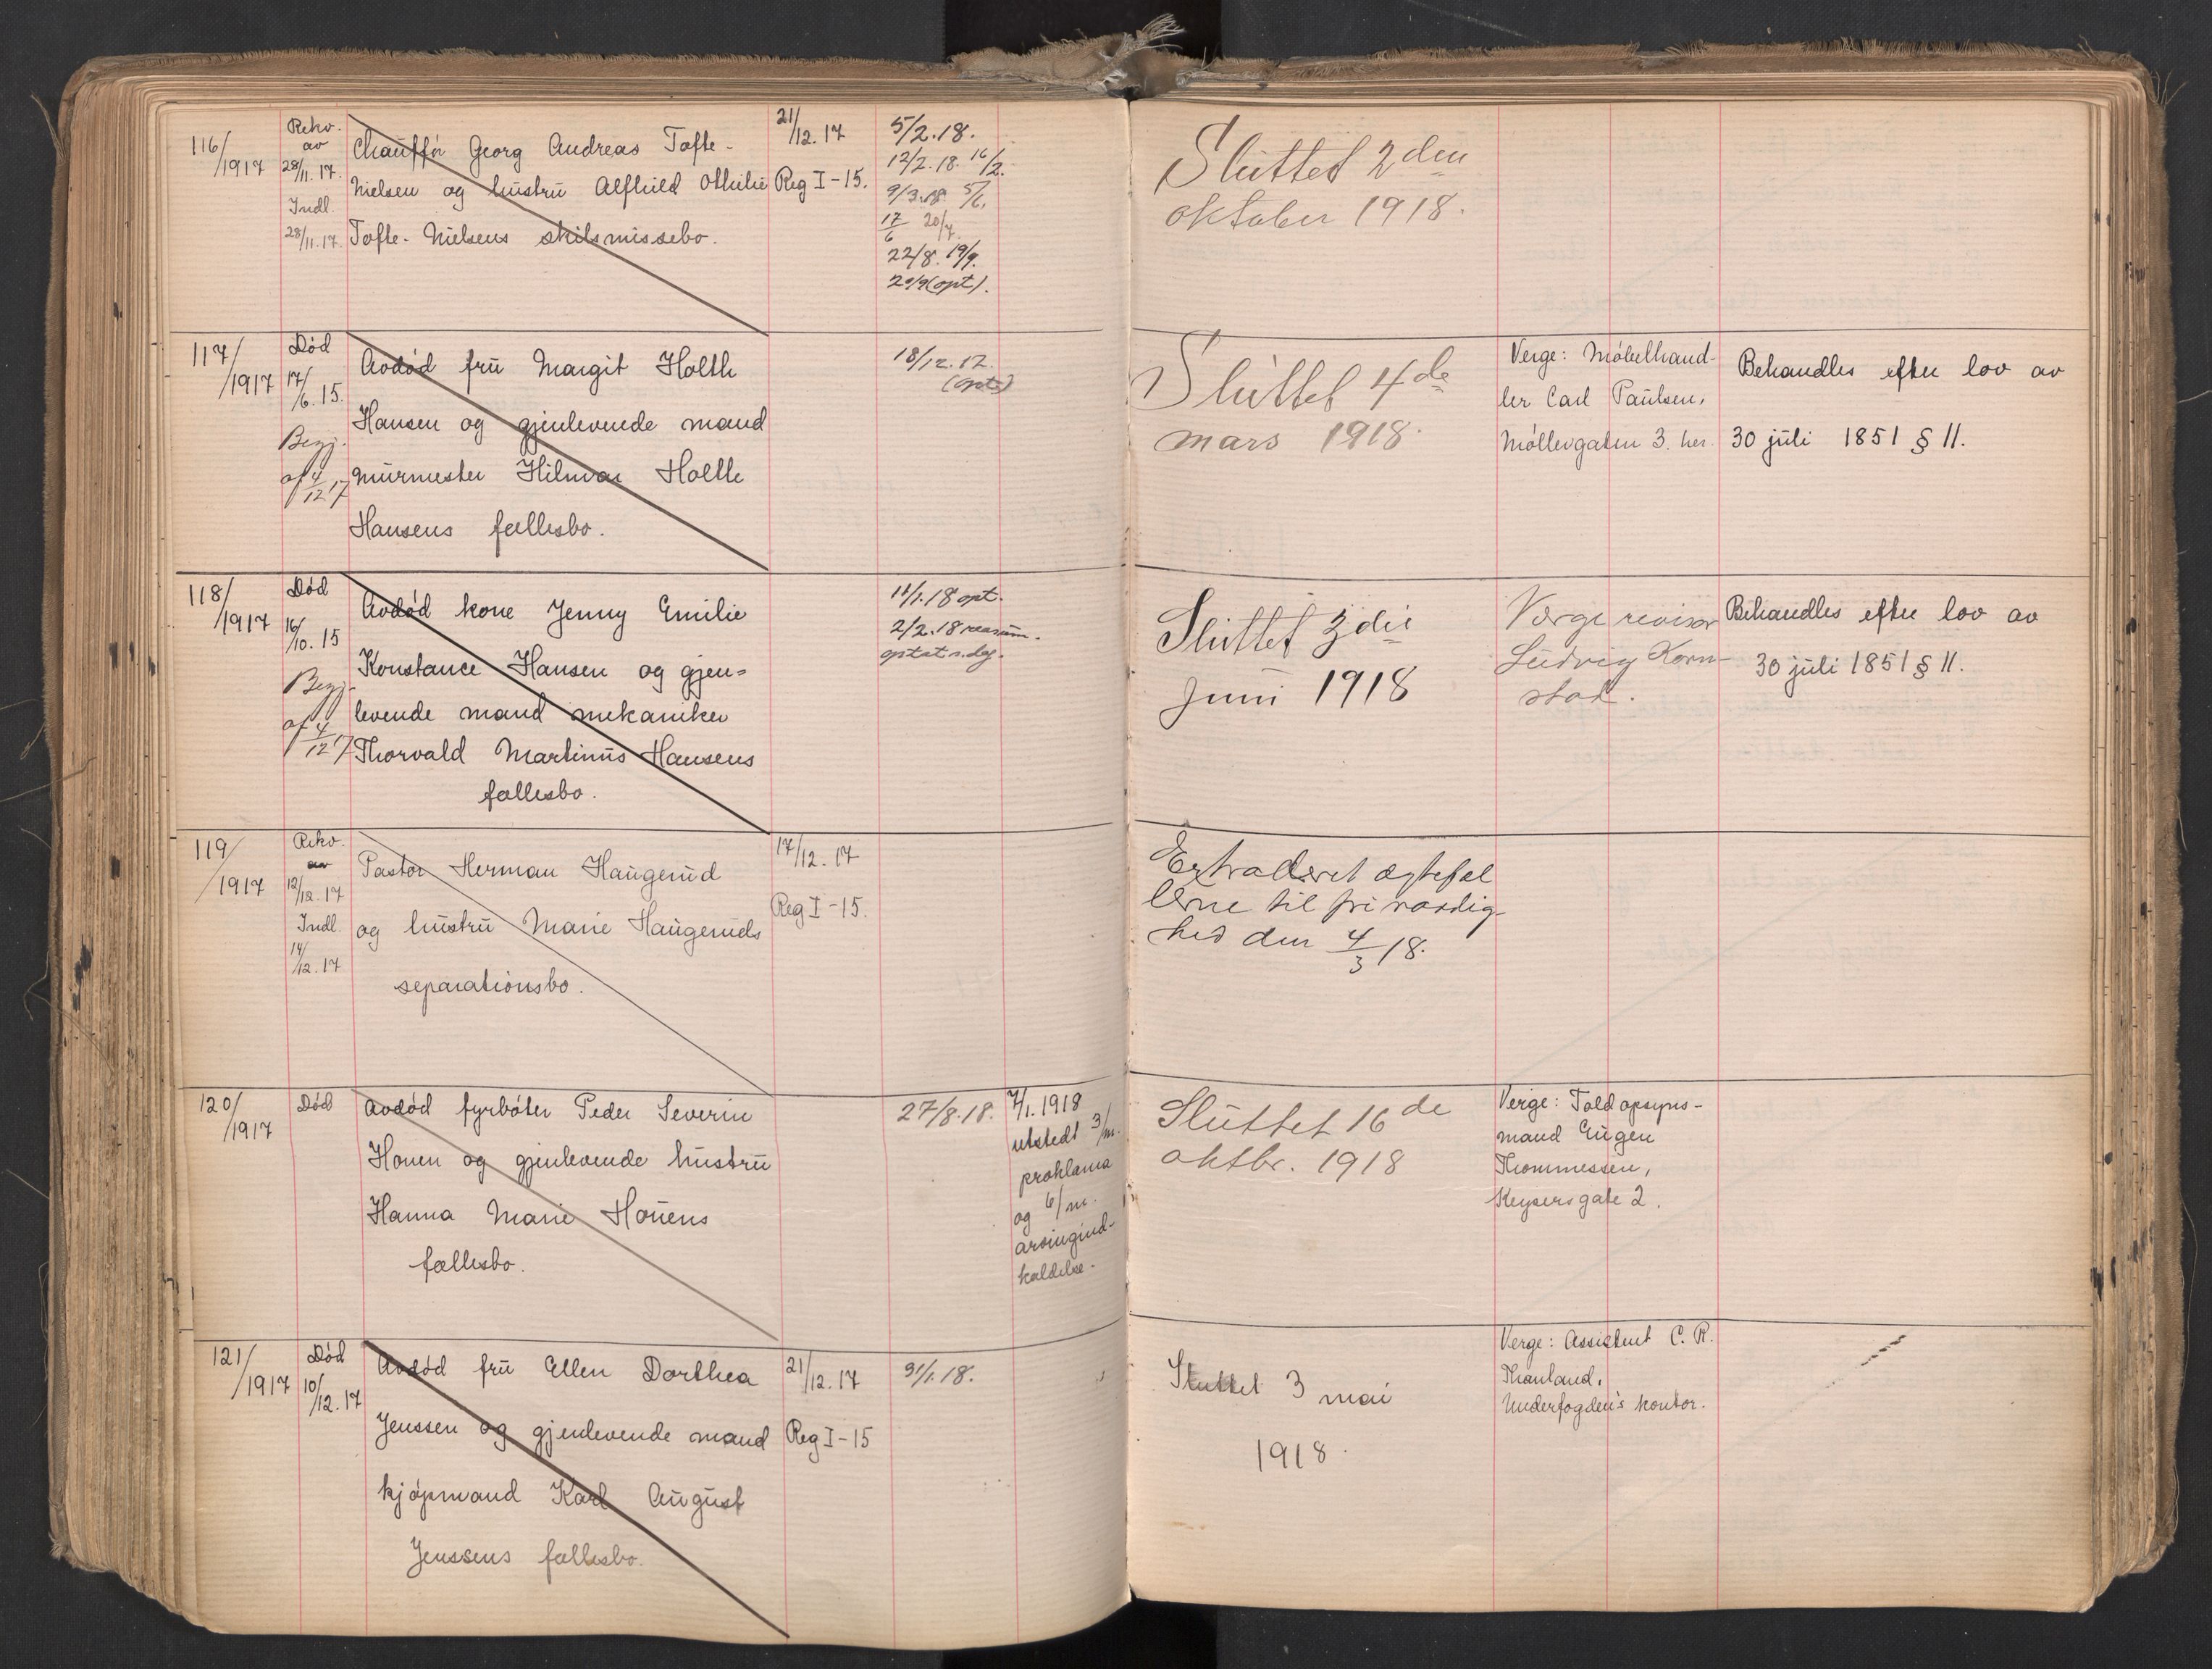 116/1917
Rekv.
av
28/11.17.
Indl.
28/11.17.
Chauffør Georg Andreas Tofte-
Nielsen og hustru Alfhild Othilie
Tofte-Nielsens skilsmissebo.
21/12.17
Reg I-15.
5/2.18.
12/2.18. 16/2.
9/3.18. 5/6.
17/6 20/7.
22/8. 19/9.
20/9 (opt).
Sluttet 2den
oktober 1918.
117/1917
Død
17/6.15.
Begj.
af 4/12 17
Avdød fru Margit Holth
Hansen og gjenlevende mand
murmester Hilmar Holth
Hansens fællesbo.
18/12.17.
Sluttet 4de
mars 1918.
Verge: Møbelhand-
ler Carl Paulsen,
Møllergaten 3. her.
Behandles efter lov av
30 juli 1851 § 11.
118/1917
Død
16/10.15
Begj.
af 4/12 17
Avdød kone Jenny Emilie
Konstance Hansen og gjen=
levende mand mekaniker
Thorvald Martinus Hansens
fællesbo.
11/1.18 opt.
2/2.18 reasum.
optat s.dg.
Sluttet 3die
Juni 1918
Værge revisor
Ludvig Korn-
stad.
Behandles efter lov av
30 juli 1851 § 11.
119/1917
Rekv.
av
12/12.17
Indl.
14/12.17
Pastor Herman Haugerud
og hustru Marie Haugeruds
separationsbo.
17/12.17
Reg I-15.
Extraderet ægtefæl
lerne til fri raadig-
hed den 4/3 18.
120/1917
Død
Avdød fyrbøter Peder Severin
Houen og gjenlevende hustru
Hanna Marie Houens
fællesbo.
27/8.18.
7/1.1918
utstedt 3/m.
proklama
og 6/m.
arvingind-
kaldelse.
Sluttet 16de
oktbr. 1918
Verge: Toldopsyns-
mand Eugen
Thommessen,
Keysersgate 2.
121/1917
Død
10/12.17
Avdød fru Ellen Dorthea
Jenssen og gjenlevende mand
kjøpmand Karl August
Jenssens fællesbo.
21/12.17
Reg I-15
31/1.18.
Sluttet 3 mai
1918.
Verge: Assistent C. R.
Thanland,
Underfogden's kontor.